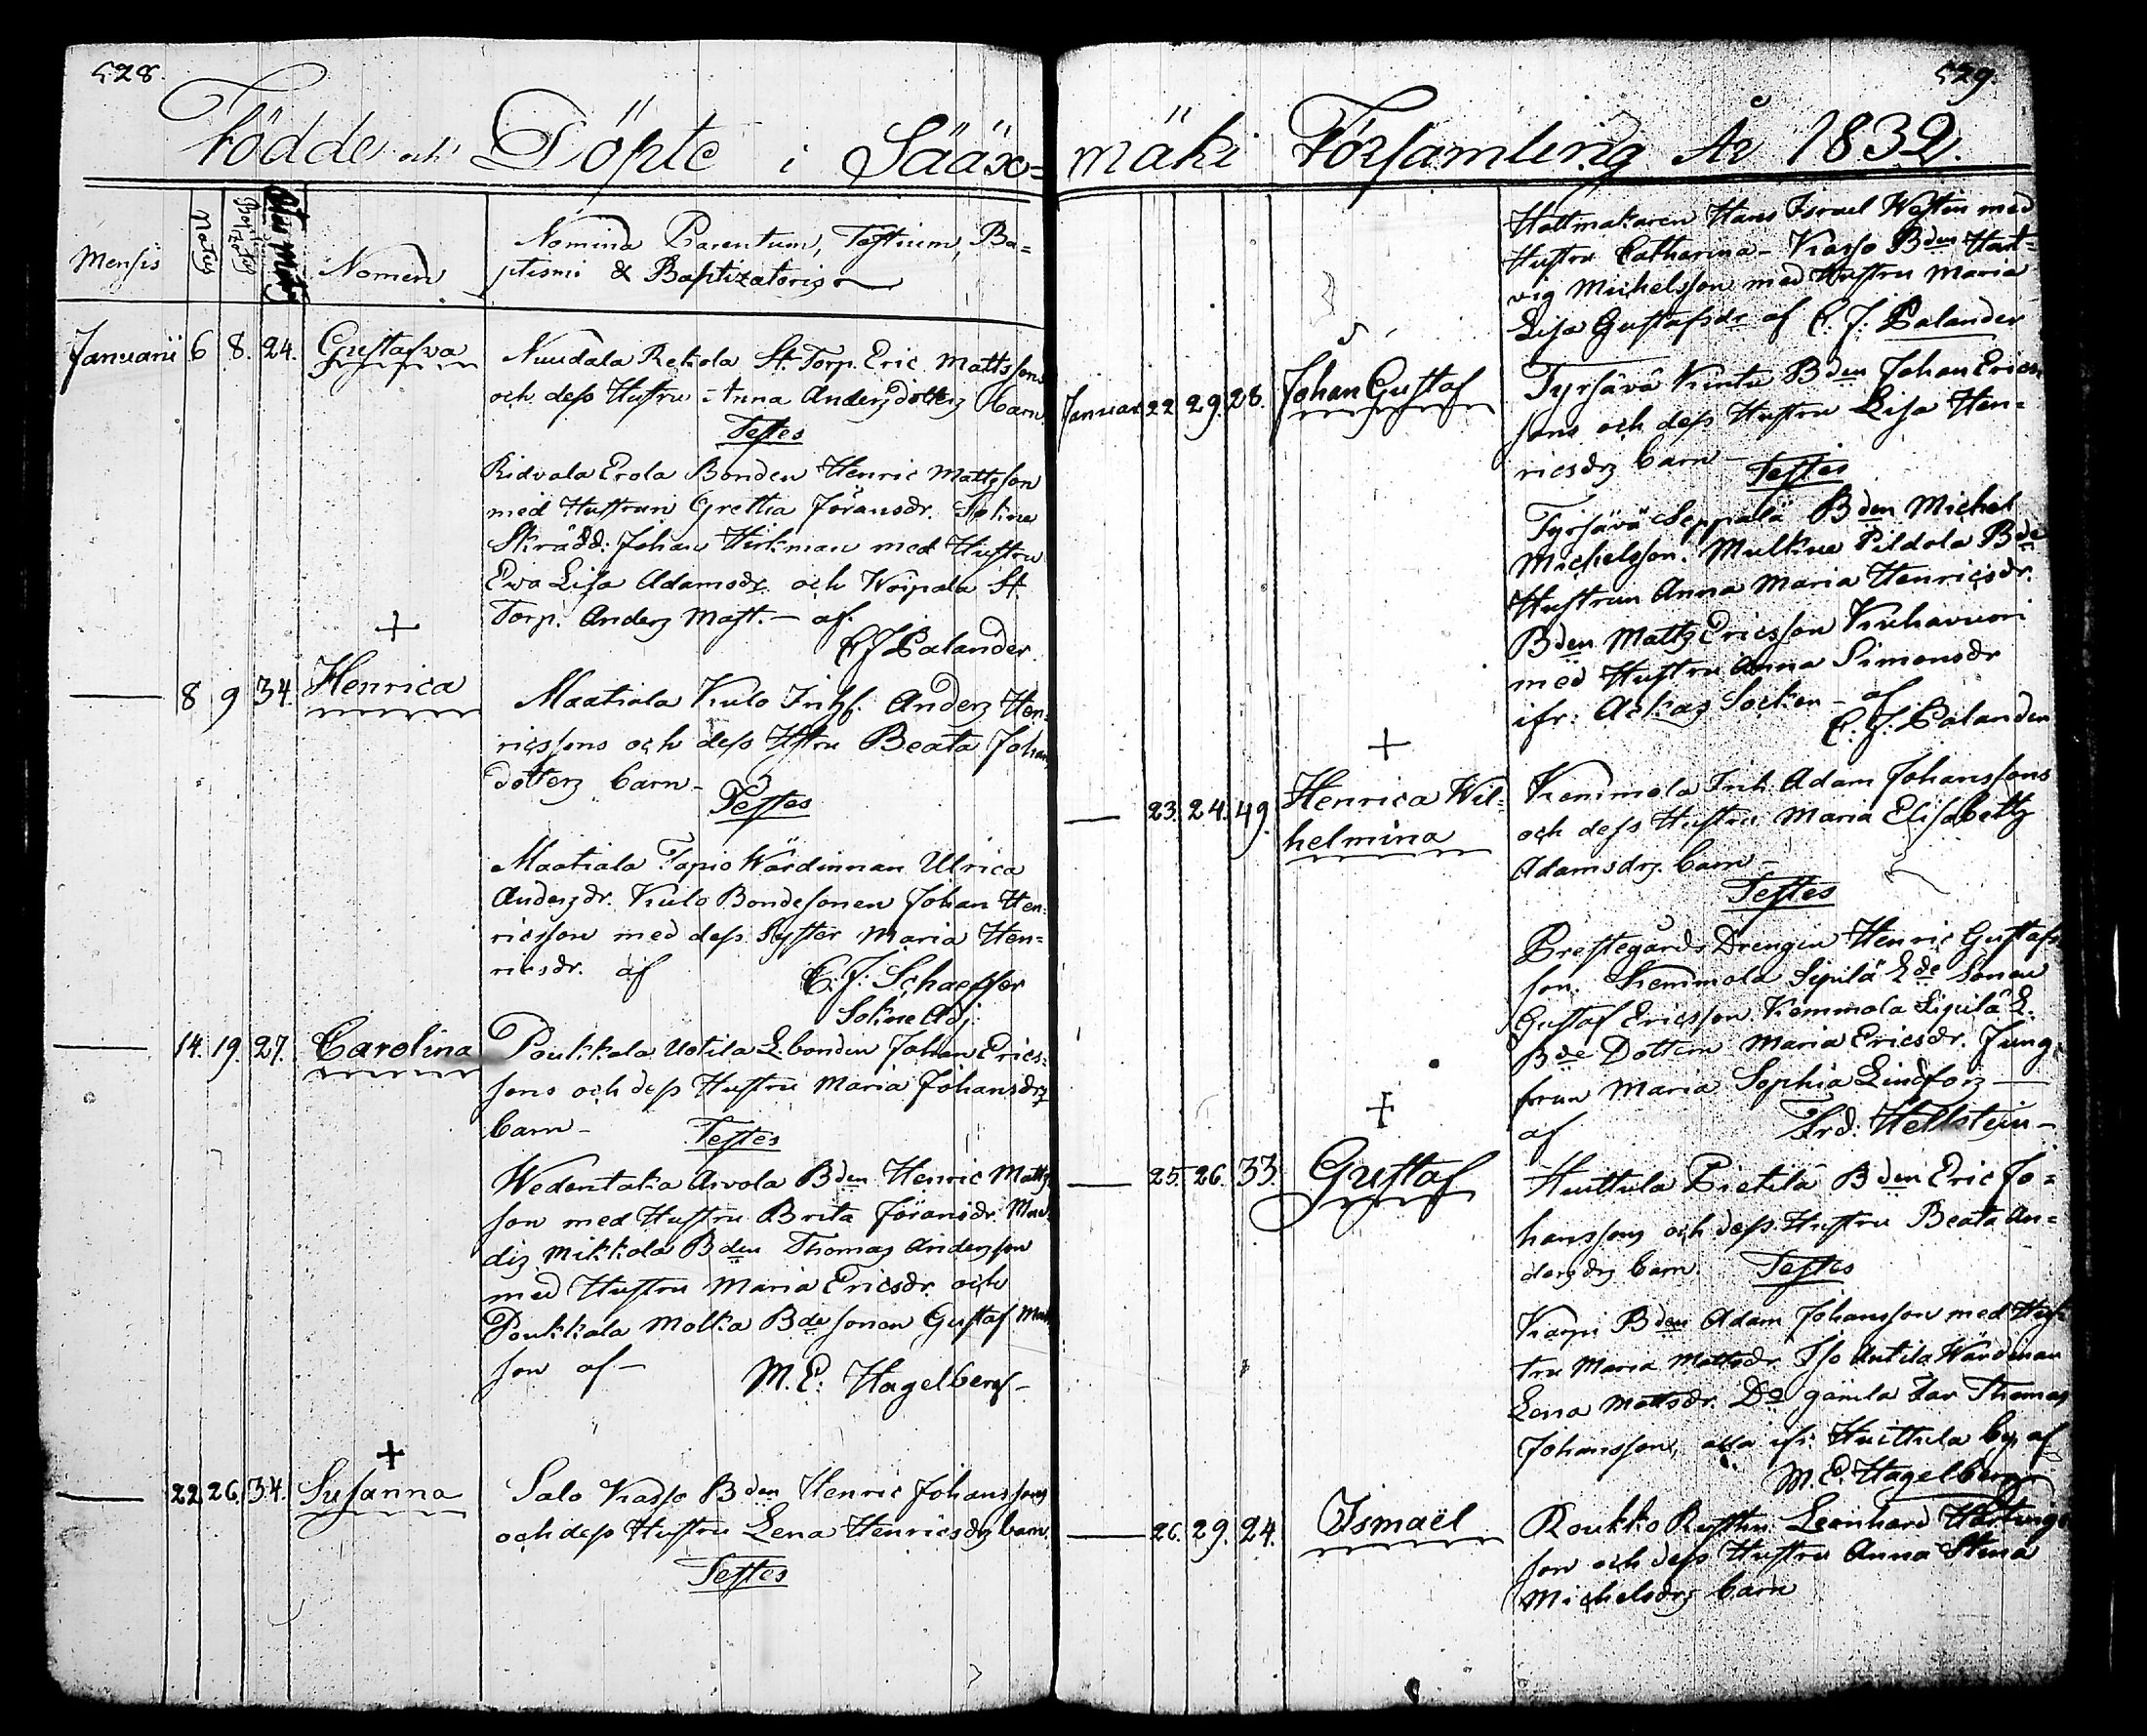 528.
Födde och Döpte i Sääx=
Mensis Natus Baptizatus Ætas Matris Nomen Nomina Parentum, Testium, Ba=
ptismi & Baptizatoris
Januarii 6 8. 24. Gustafva Nuudala Rekola St. Torp. Eric Mattssons
och dess Hustru Anna Andersdotters barn
Testes
Ridvala Erola Bonden Henric Mattsson
med Hustrun Gretha Jöransdr. Sokne
Skrädd: Johan Hirkman med Hustru
Eva Lisa Adamsdr. och Woipala St.
Torp. Anders Matt. – af.
C J Palander
+
8 9 34. Henrica Maatiala Kulo Inhs. Anders Hen=
ricssons och dess Hstru Beata Johans
dotters barn –
Testes
Maatiala Tapio Wärdinnan Ulrica
Andersdr. Kulo Bondesonen Johan Hen=
ricsson med dess Syster Maria Hen=
ricsdr. af C. J. Schaeffer
Sokne Adj:
14. 19. 27. Carolina Poukkala Uotila L. bonden Johan Erics=
sons och dess Hustru Maria Johansdrs
barn – Testes
Wedentaka Arvola Bden Henric Matts
son med Hustru Brita Jöransdr. Mau=
dis Mikkola Bden Thomas Andersson
med Hustru Maria Ericsdr. och
Poukkala Molka Bde sonen Gustaf Matts
son af – M. E: Hagelberg –
+
22 26. 34. Susanna Salo Kasso Bden Henric Johanssons
och dess Hustru Lena Henricsdrs barn.
Testes
529.
mäki Församling År 1832.
Hattmakaren Hans Israel Westin med
Hustru Catharina – Kasso Bden Hart=
vig Michelsson med Hustru Maria
Lisa Gustafsdr af C. J: Palander
Januar 22 29. 28. Johan Gustaf Tyrsävä Kinta Bden Johan Erics=
sons och dess Hustru Lisa Hen=
ricsdrs barn – Testes
Tyrsävä Seppälä Bden Michel
Michelsson. Mulkue Pildola Bde
Hustrun Anna Maria Henricsdr.
Bden Matts Ericsson Kuhavuori
med Hustru Anna Simonsdr
ifr: Ackas Socken – af
C. J. Palander
+
23. 24. 49. Henrica Wil= Kemmola Inh. Adam Johanssons
helmina och dess Hustru Maria Elisabetts
Adamsdrs. barn –
Testes
Prestegårds Drengen Henric Gustafs
son. Kemmola Sipilä Lde Sonen
Gustaf Ericsson Kemmola Sipilä L.
Bde Dottern Maria Ericsdr. Jung=
frun Maria Sophia Lindfors –
af Frd: Hellstein –
+
25. 26. 33. Gustaf Huittula Pietilä Bden Eric Jo=
hanssons och dess Hustru Beata An=
dersdrs barn. Testes
Karpi Bden Adam Johansson med Hus=
tru Maria Mattsdr. Iso Antila Wärdinan
Lena Mattsdr. Do gamla Far Thomas
Johansson, alla ifr: Huittula by, af
M. E. Hagelberg
26. 29. 24. Ismaël Roukko Rustm. Leonhard Hartvigs
son och dess Hustru Anna Stina
Michelsdrs barn